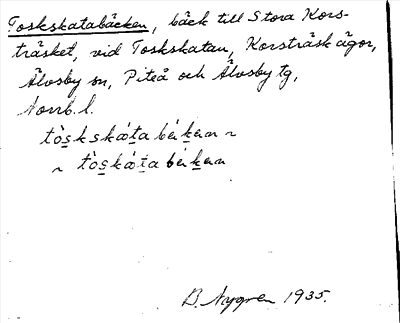 Toskskatabäcken, bäck till Stora Kors-
träsket, vid Toskskatan, Korsträsk ägor,
Älvsby sn, Piteå och Älvsby tg,
Norrb. l.
tòskskáta bèken ~
~ tòskáta bèken
B. Nygren 1935.